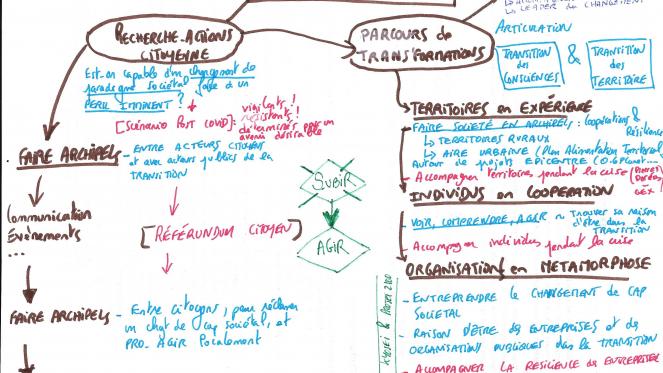 & LEADER du CHANGEMENT
RECHERCHE-ACTIONS
CITOYENNE
PARCOURS de
TRANSFORMATIONS
ARTICULATION
TRANSITION
des
CONSCIENCES
&
TRANSITION
des
TERRITOIRE
Est-on capable d'un changement de
paradigme sociétal face à un
PERIL IMMINENT ?
[Scénario POST COVID]:
vigilants !
résistants !
déterminés pour un
avenir désirable
FAIRE ARCHIPELS
- ENTRE ACTEURS CITOYENS
et avec acteurs publics de la
TRANSITION
Communication
Evénements
...
[RÉFÉRENDUM CITOYEN]
SUBIR
AGIR
FAIRE ARCHIPELS
- Entre citoyens, pour réclamer
un chgt de cap sociétal, et
PRO-AGIR localement
TERRITOIRES en EXPÉRIENCE
- FAIRE SOCIÉTÉ EN ARCHIPELS : Coopérations &
Résilience
↳ TERRITOIRES RURAUX
↳ AIRE URBAINE (Plan Alimentation Territorial)
Autour de projets EPICENTRE
- Accompagner territoire pendant la crise
INDIVIDUS en COOPERATION
- VOIR, COMPRENDRE, AGIR ~ Trouver sa raison
d'être dans la
TRANSITION
- Accompagner individus pendant la crise
ORGANISATIONS en METAMORPHOSE
- ENTREPRENDRE le CHANGEMENT de CAP
SOCIETAL
- RAISON D'ÊTRE des ENTREPRISES et des
ORGANISATIONS PUBLIQUES dans la TRANSITION
- ACCOMPAGNER LA RESILIENCE des ENTREPRISES